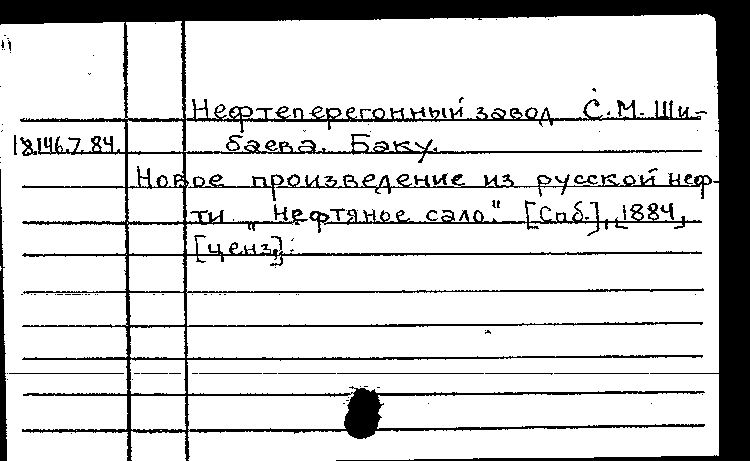 Нефтеперегонный завод С.М. Ши-
18.146.7.84.
баева. Баку.
Новое произведение из русской неф-
ти „Нефтяное сало." [Спб.], [1884,
[ценз.].